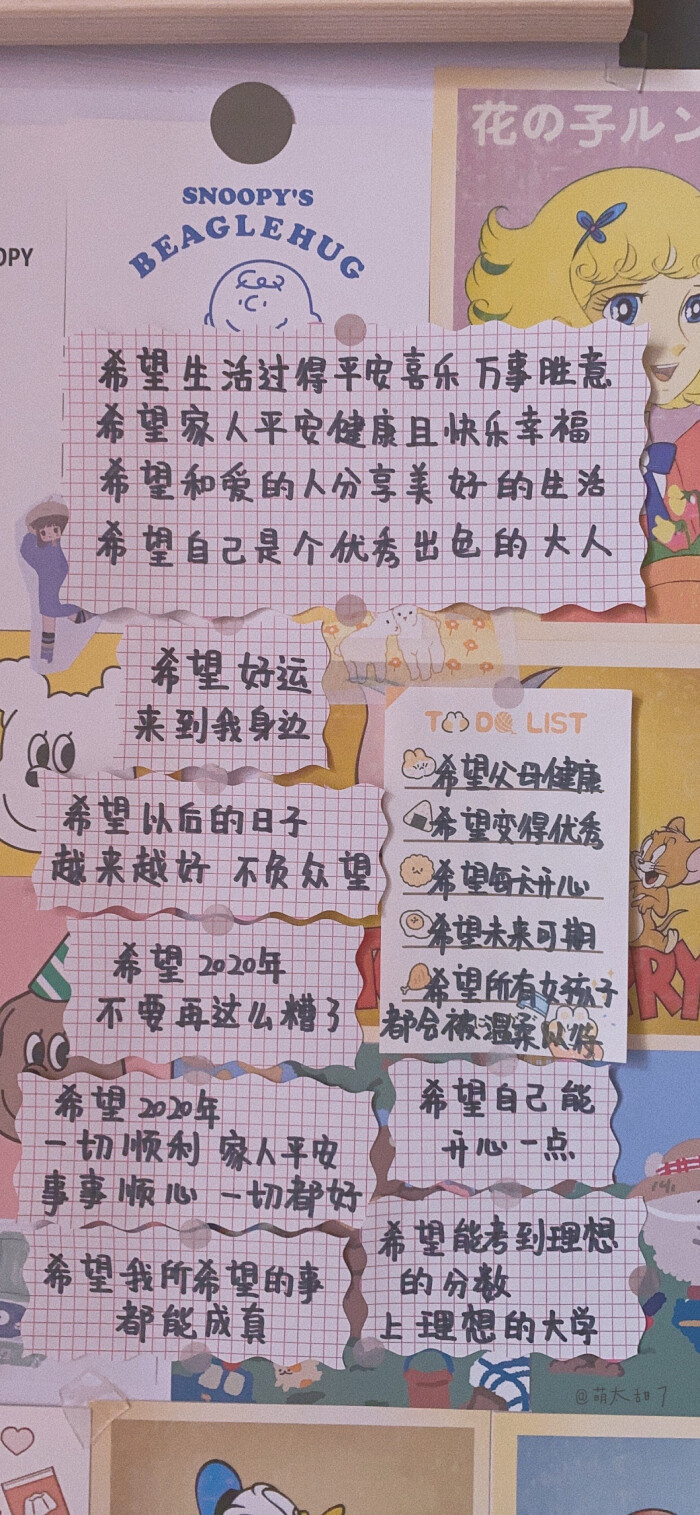 OPY
SNOOPY'S
BEAGLEHUG
花の子ルン
希望生活过得平安喜乐 万事胜意
希望家人平安健康且快乐幸福
希望和爱的人分享美好的生活
希望自己是个优秀出色的大人
希望好运
来到我身边
TO DO LIST
希望父母健康
希望变得优秀
希望每天开心
希望未来可期
希望所有女孩子
都会被温柔以待
希望以后的日子
越来越好 不负众望
希望2020年
不要再这么糟了
希望2020年
一切顺利 家人平安
事事顺心 一切都好
希望自己能
开心一点
希望我所希望的事
都能成真
希望能考到理想
的分数
上理想的大学
RRY
@萌太甜了